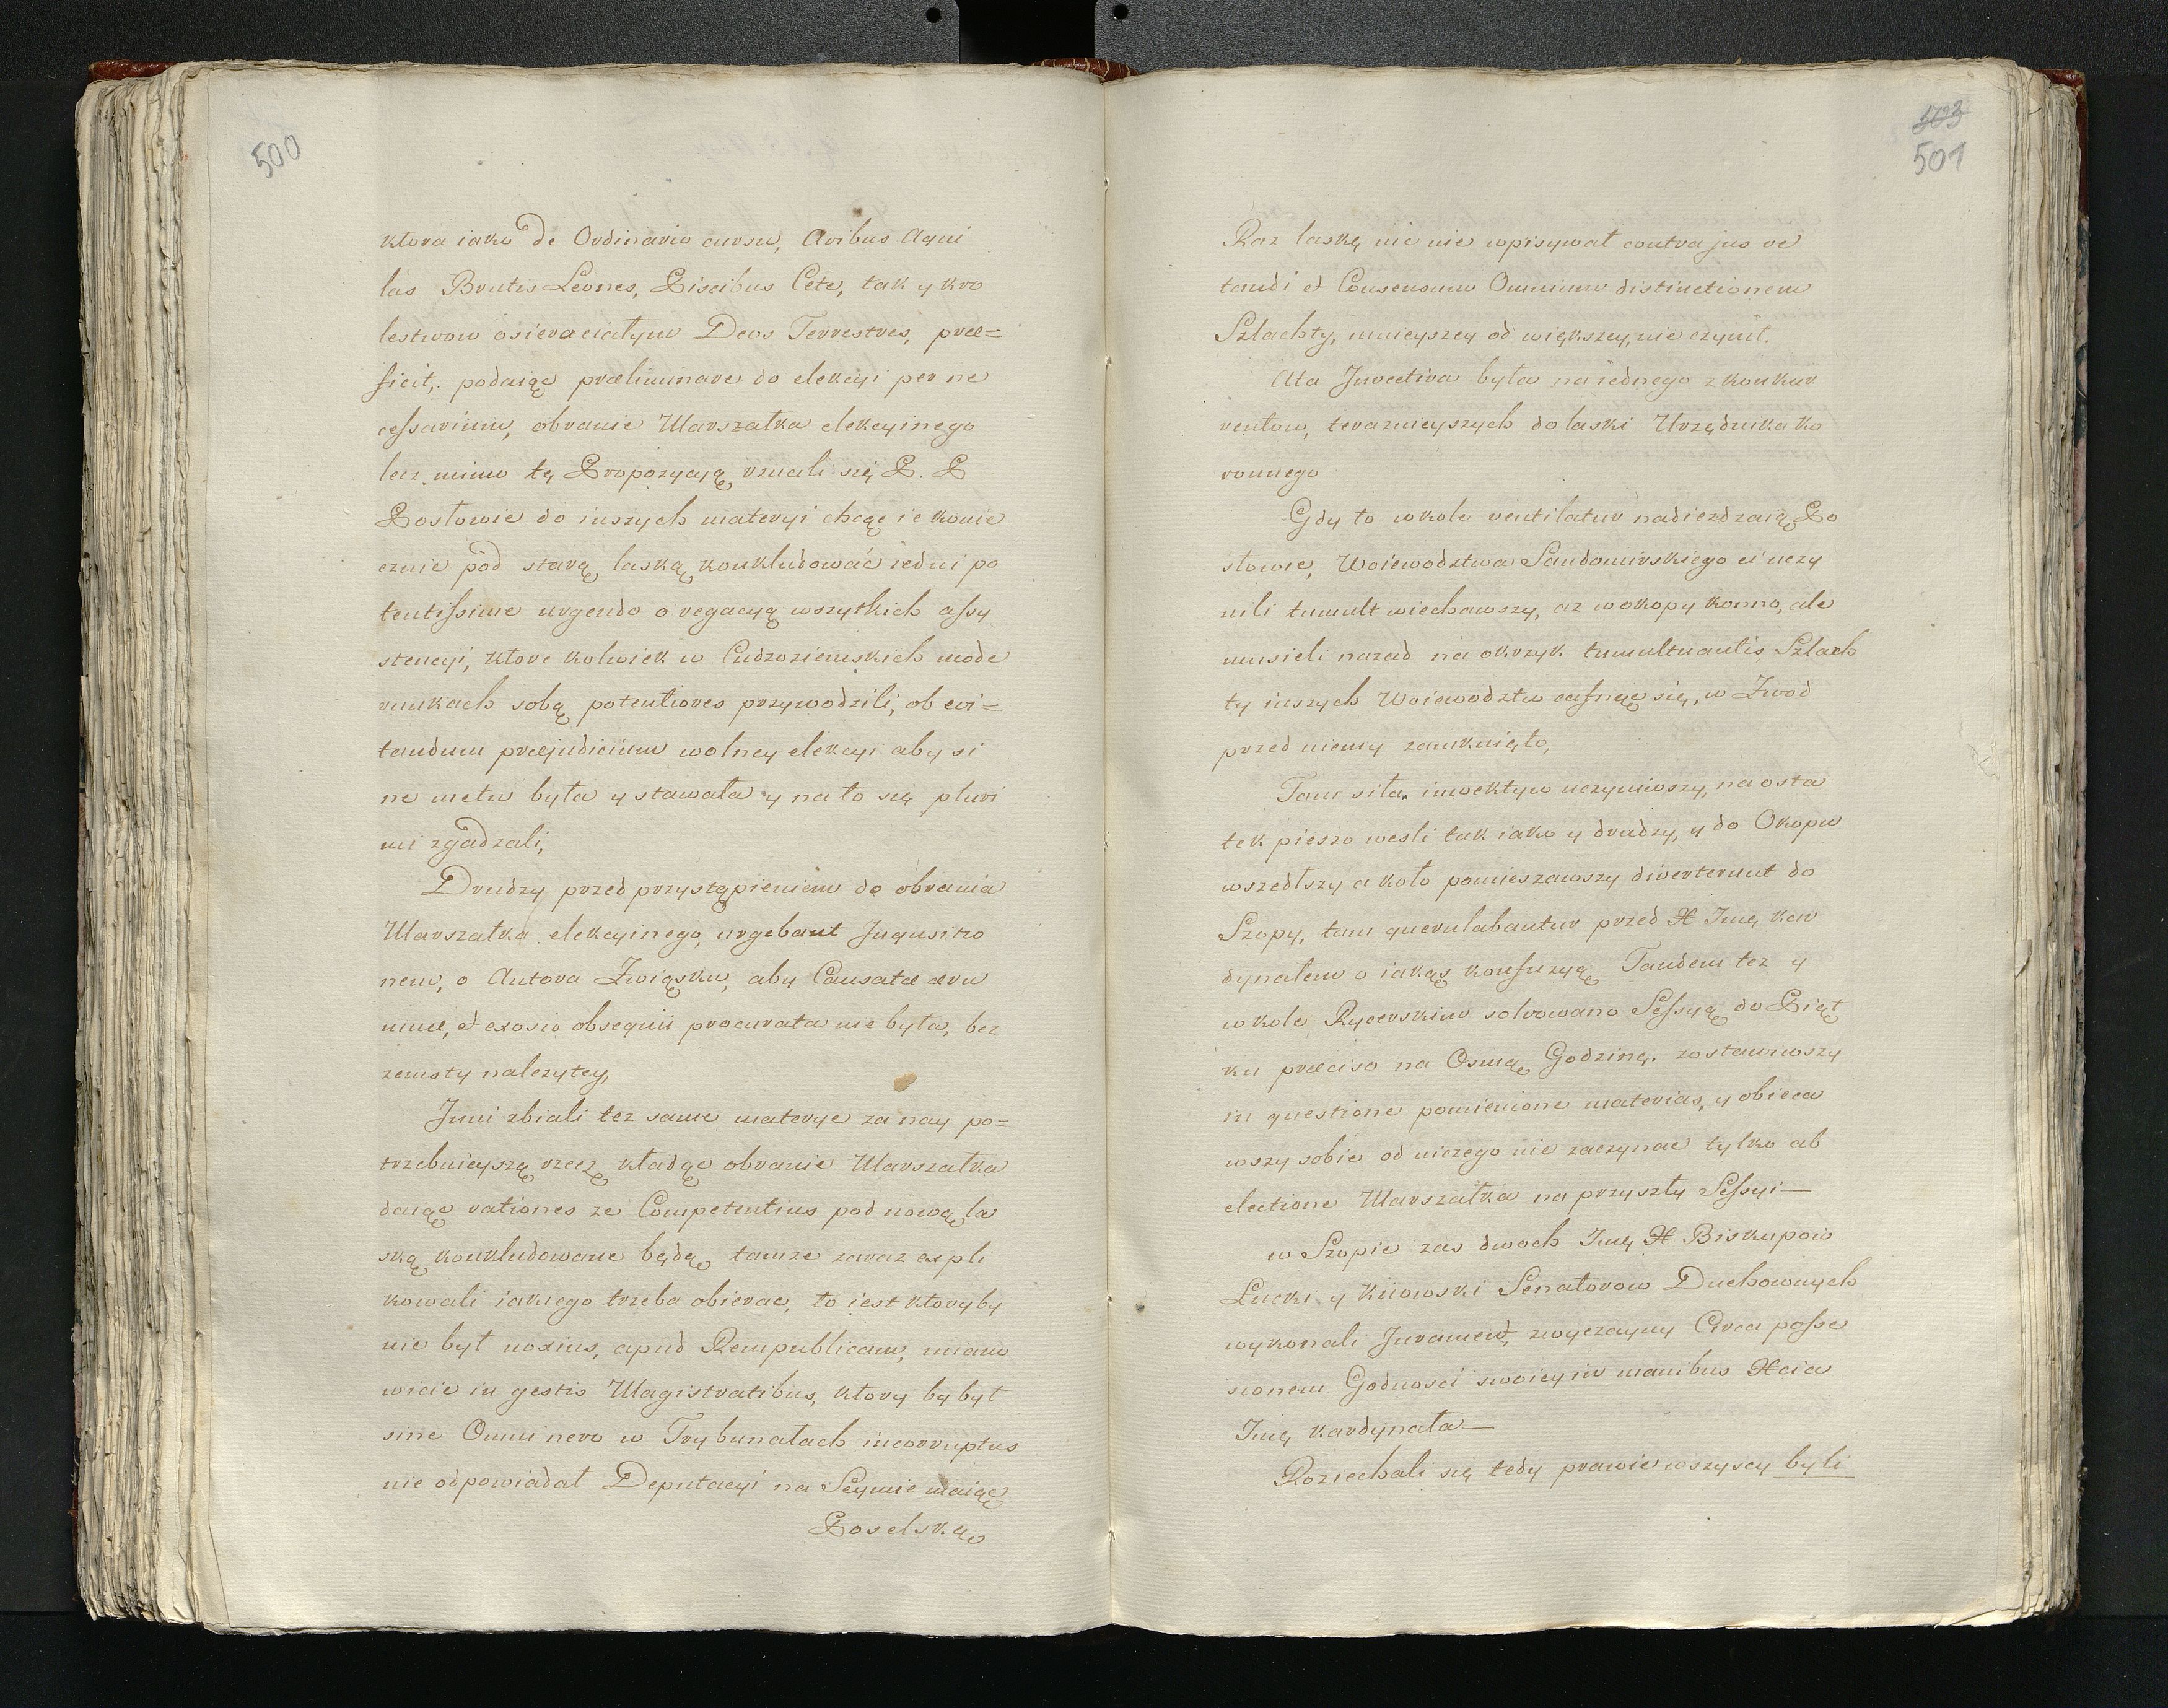 500
ktora iako de Ordinario cursu, Avibus Aqui
las Brutis Leones, Piscibus Cete, tak y kro
lestwom osierociałym Deos Terrestres, præ=
ficit, podaiąc præliminare do elekcyi per ne
cessarium, obranie Marszałka elekcyinego
lecz mimo tę Propozycyią rznali się P. P
Posłowie do inszych materyi chcąc ie konie
cznie pod starą laską konkludować iedni po
tentissime urgendo o regacyą wszytkich assy
stencyi, ktore kolwiek w Cudzoziemskich mode
runkach sobą potentiores przywodzili, ob evi=
tandum præjudicium wolney elekcyi aby si
ne metu była y stawała y na to się pluri
mi zgadzali,
Drudzy przed przystąpieniem do obrania
Marszałka elekcyinego, urgebant Inqusitio
nem, o Autora Związku, aby Causatæ æru
mnæ, et exosio obsequii procurata nie była, bez
zemsty nalezytey,
Inni zbiali tez same materye za nay po=
trzebnieyszą rzecz kładąc obranie Marszałka
daiąc rationes ze Competentius pod nową la
ską konkludowane będą, tamze zaraz expli
kowali iakiego trzeba obierac, to iest ktoryby
nie był noxius, apud Rempublicam, miano
wicie in gestis Magistratibus, ktory by był
sine Omni nevo w Trybunałach incorruptus
nie odpowiadał Deputacyi na Seymie maiąc
Poselską
503
501
Raz laskę nic nie wpisywał contra jus ve
tandi et Consensum Omnium distinctionem
Szlachty, mnieyszey od większey, nie czynił.
Ata Invectiva była na iednego z konkur
rentow, teraznieyszych do laski Urzędnika ko
ronnego
Gdy to w kole ventilatur nadiezdzaią Po
słowie, Woiewodztwa Sandomirskiego ci uczy
nili tumult wiechawszy, az w okopy konno, ale
musieli nazad na okrzyk tumultuantis Szlach
ty inszych Woiewodztw cofnąc się, w Zwod
przed niemy zamknięto,
Tam siła inwektyw uczyniwszy, na osta
tek pieszo wesli tak iako y drudzy, y do Okopu
wszedłszy a koło pomieszawszy diverterunt do
Szopy, tam querulabantur przed X Imę kar
dynałem o iakąs konfuzyą Tandem tez y
w kole Rycerskim solvowano Sessyą do Piąt
ku præciso na Osmą Godzinę. zostawiwszy
in questione pomienione materias, y obieca
wszy sobie od niczego nie zaczynac tylko ab
electione Marszałka na przyszły Sessyi—
w Szopie zas dwoch Imę X Biskupow
Łucki y Kiiowski Senatorow Duchownych
wykonali Jurament, zwyczayny Circa posse
sionem Godnosci swoiey in manibus Xcia
Imę kardynała—
Roziechali się tedy prawie wszyscy byli